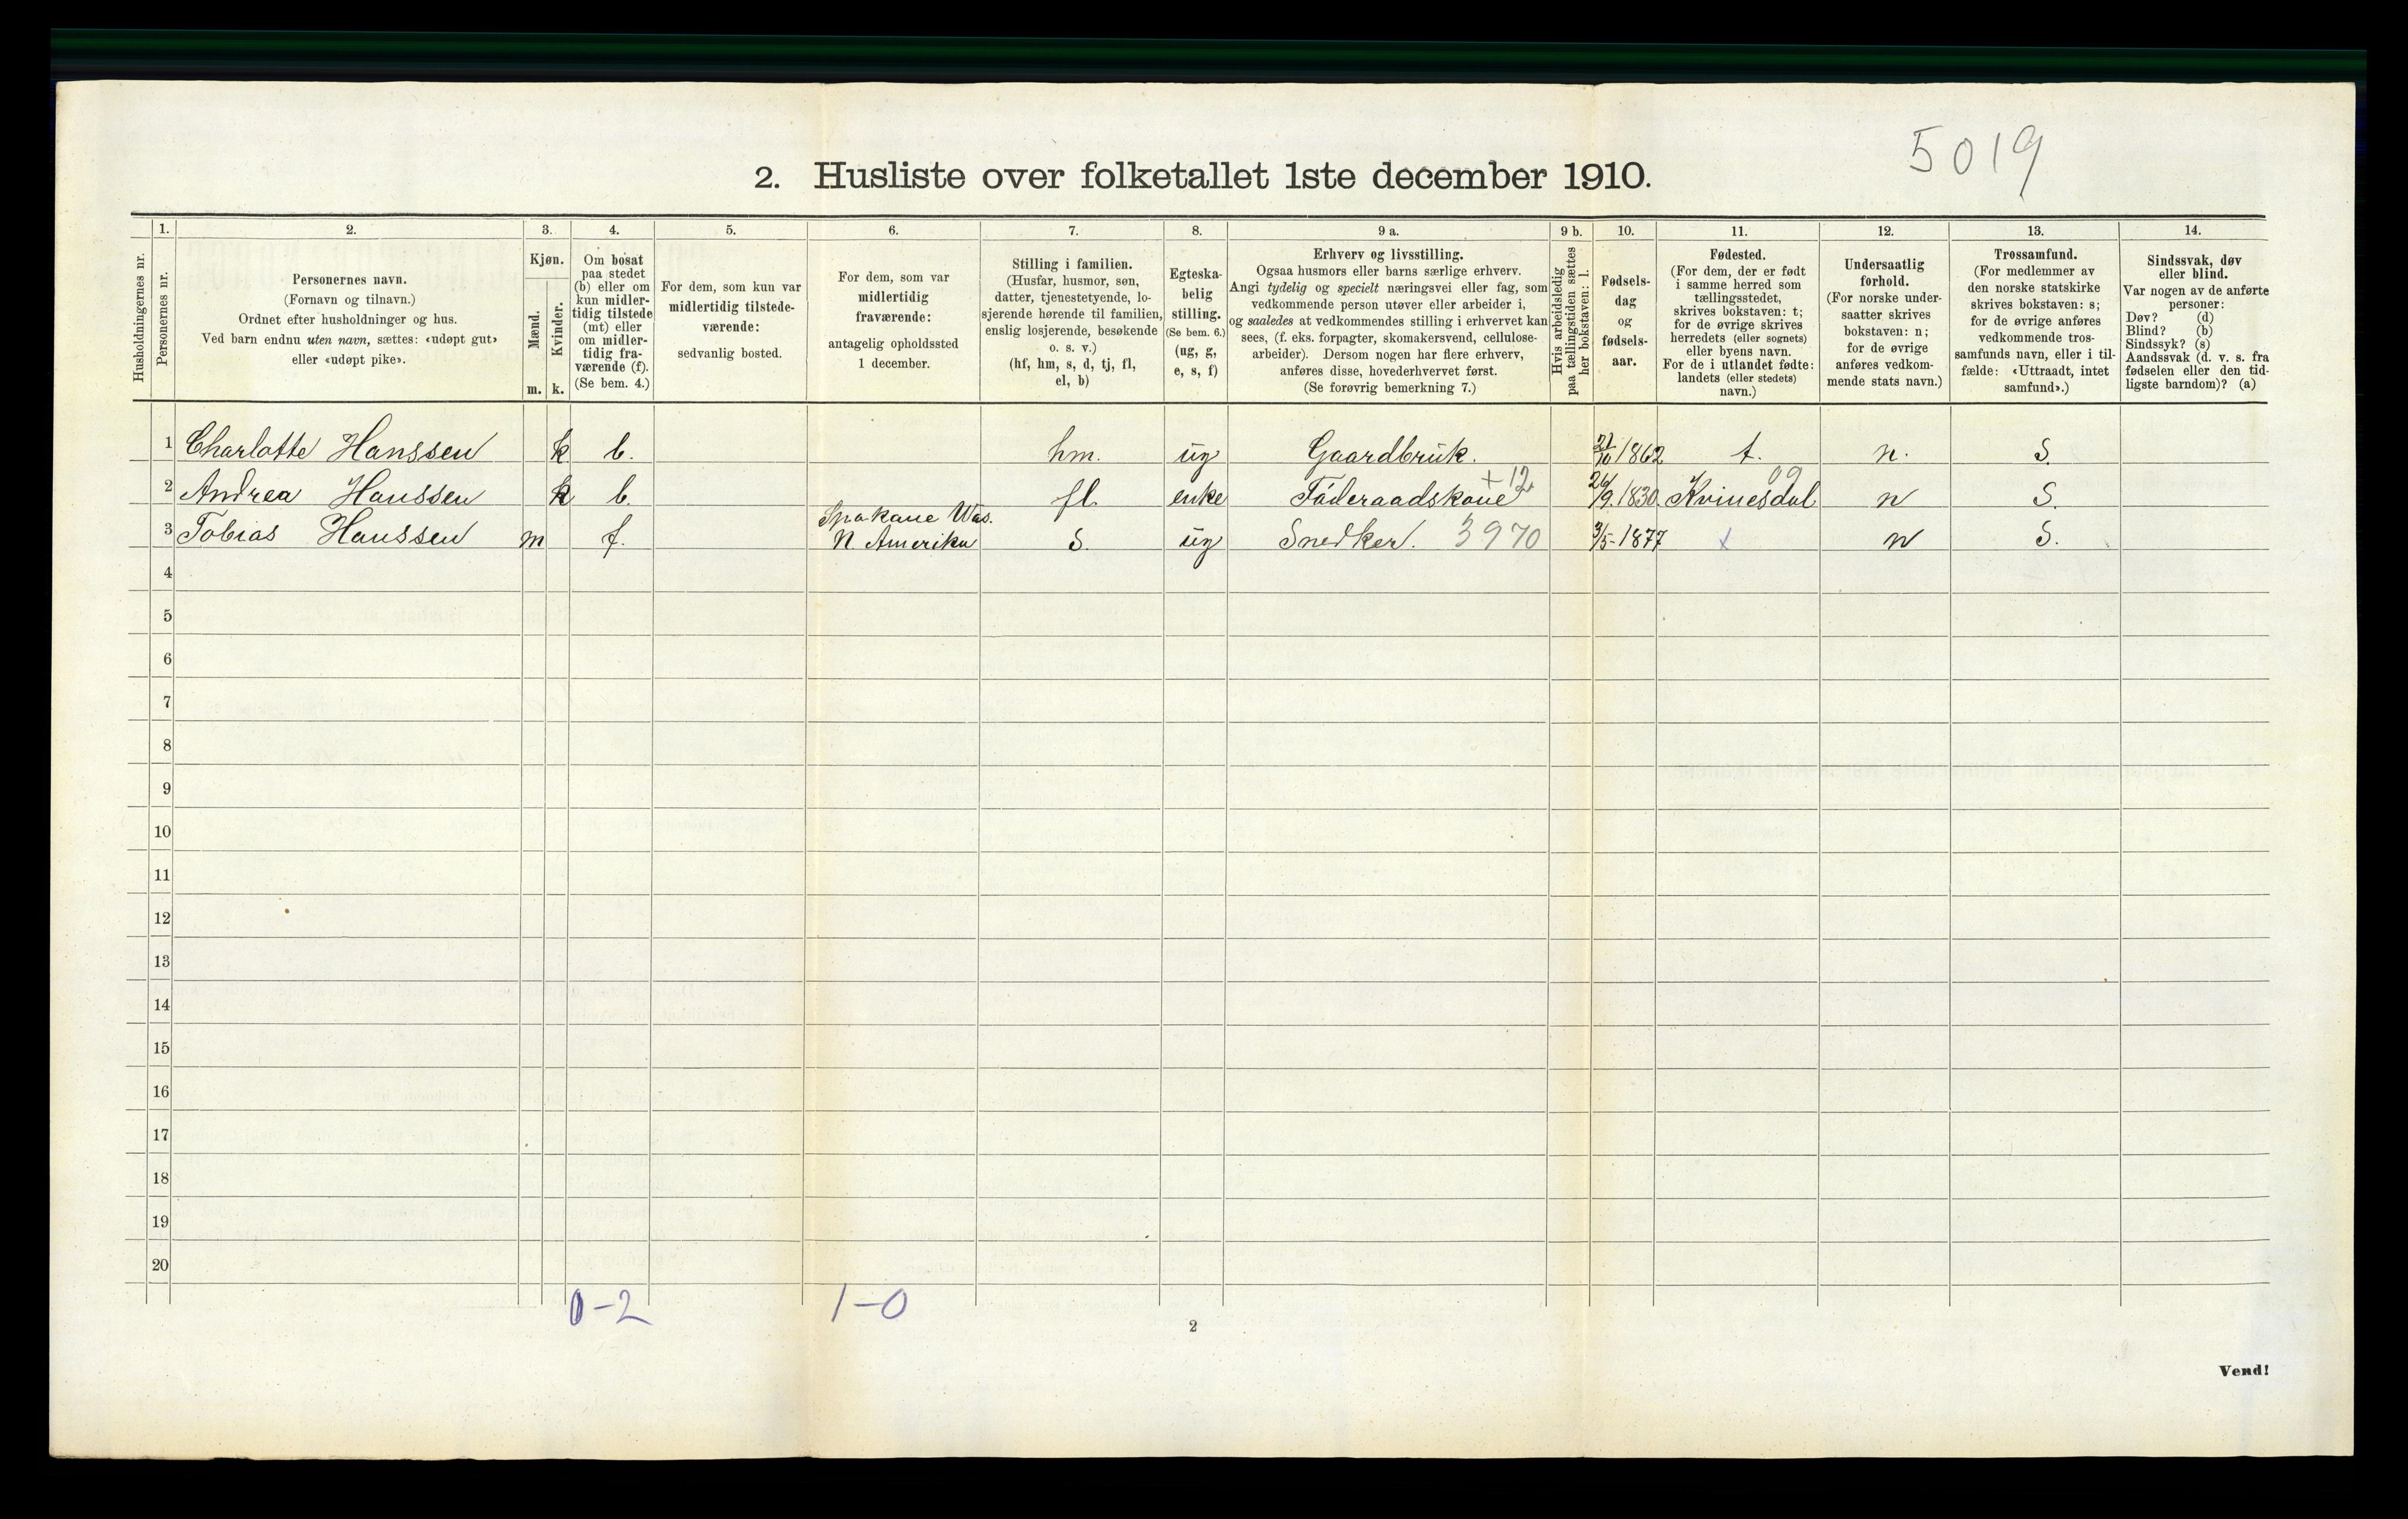 5019
2. Husliste over folketallet 1ste december 1910.
1. 2. 3. 4. 5. 6. 7. 8. 9 a. 9 b. 10. 11. 12. 13. 14.
Husholdningernes nr.
Personernes nr.
Personernes navn.
(Fornavn og tilnavn.)
Ordnet efter husholdninger og hus.
Ved barn endnu uten navn, sættes: «udøpt gut»
eller «udøpt pike».
Kjøn.
Mænd.
m.
Kvinder.
k.
Om bosat
paa stedet
(b) eller om
kun midler-
tidig tilstede
(mt) eller
om midler-
tidig fra-
værende (f).
(Se bem. 4.)
For dem, som kun var
midlertidig tilstede-
værende:
sedvanlig bosted.
For dem, som var
midlertidig
fraværende:
antagelig opholdssted
1 december.
Stilling i familien.
(Husfar, husmor, søn,
datter, tjenestetyende, lo-
sjerende hørende til familien,
enslig losjerende, besøkende
o. s. v.)
(hf, hm, s, d, tj, fl,
el, b)
Egteska-
belig
stilling.
(Se bem. 6.)
(ug, g,
e, s, f)
Erhverv og livsstilling.
Ogsaa husmors eller barns særlige erhverv.
Angi tydelig og specielt næringsvei eller fag, som
vedkommende person utøver eller arbeider i,
og saaledes at vedkommendes stilling i erhvervet kan
sees, (f. eks. forpagter, skomakersvend, cellulose-
arbeider). Dersom nogen har flere erhverv,
anføres disse, hovederhvervet først.
(Se forøvrig bemerkning 7.)
Hvis arbeidsledig
paa tællingstiden sættes
her bokstaven: l.
Fødsels-
dag
og
fødsels-
aar.
Fødested.
(For dem, der er født
i samme herred som
tællingsstedet,
skrives bokstaven: t;
for de øvrige skrives
herredets (eller sognets)
eller byens navn.
For de i utlandet fødte:
landets (eller stedets)
navn.)
Undersaatlig
forhold.
(For norske under-
saatter skrives
bokstaven: n;
for de øvrige
anføres vedkom-
mende stats navn.)
Trossamfund.
(For medlemmer av
den norske statskirke
skrives bokstaven: s;
for de øvrige anføres
vedkommende tros-
samfunds navn, eller i til-
fælde: «Uttraadt, intet
samfund».)
Sindssvak, døv
eller blind.
Var nogen av de anførte
personer:
Døv? (d)
Blind? (b)
Sindssyk? (s)
Aandssvak (d. v. s. fra
fødselen eller den tid-
ligste barndom)? (a)
1 Charlotte Hanssen k b. hm. ug Gaardbruk. 1862 t. n. S.
+ 12. 09
2 Andrea Hanssen k b. fl enke Føderaadskone 26/9. 1830. Kvinesdal n S.
Spokane Was.
3 Tobias Hanssen m f. N. Amerika S. ug Snedker. 3970 3/5-1877 x n S.
4
5
6
7
8
9
10
11
12
13
14
15
16
17
18
19
20
0-2 1-0
2
Vend!